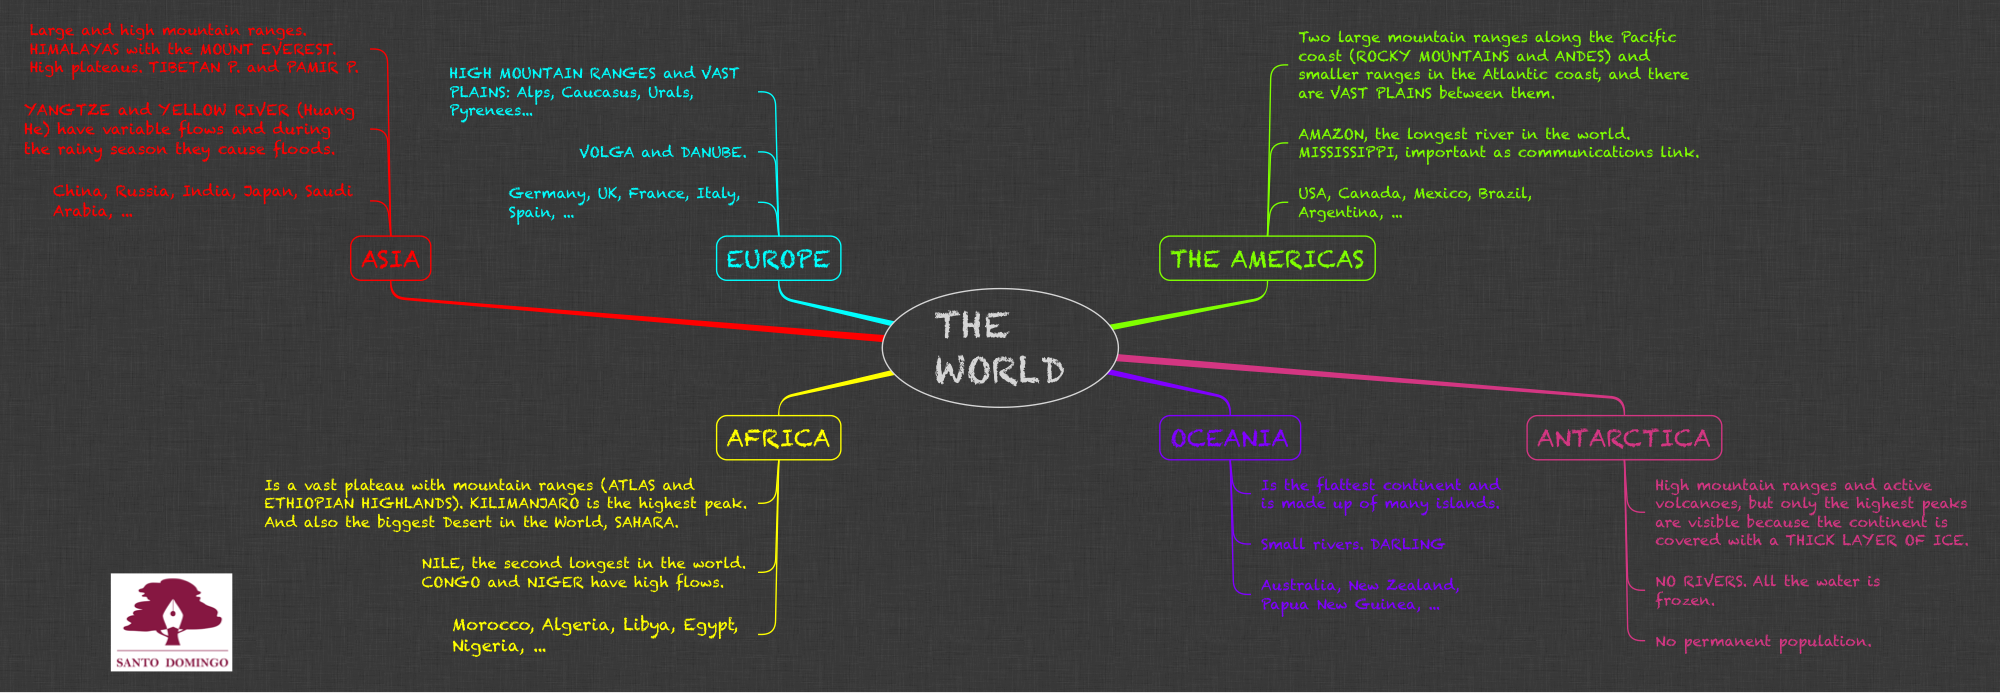 Large and high mountain ranges.
HIMALAYAS with the MOUNT EVEREST.
High plateaus. TIBETAN P. and PAMIR P.
YANGTZE and YELLOW RIVER (Huang
He) have variable flows and during
the rainy season they cause floods.
China, Russia, India, Japan, Saudi
Arabia, ...
ASIA
HIGH MOUNTAIN RANGES and VAST
PLAINS: Alps, Caucasus, Urals,
Pyrenees...
VOLGA and DANUBE.
Germany, UK, France, Italy,
Spain, ...
EUROPE
Two large mountain ranges along the Pacific
coast (ROCKY MOUNTAINS and ANDES) and
smaller ranges in the Atlantic coast, and there
are VAST PLAINS between them.
AMAZON, the longest river in the world.
MISSISSIPPI, important as communications link.
USA, Canada, Mexico, Brazil,
Argentina, ...
THE AMERICAS
THE
WORLD
AFRICA
Is a vast plateau with mountain ranges (ATLAS and
ETHIOPIAN HIGHLANDS). KILIMANJARO is the highest peak.
And also the biggest Desert in the World, SAHARA.
NILE, the second longest in the world.
CONGO and NIGER have high flows.
Morocco, Algeria, Libya, Egypt,
Nigeria, ...
OCEANIA
Is the flattest continent and
is made up of many islands.
Small rivers. DARLING
Australia, New Zealand,
Papua New Guinea, ...
ANTARCTICA
High mountain ranges and active
volcanoes, but only the highest peaks
are visible because the continent is
covered with a THICK LAYER OF ICE.
NO RIVERS. All the water is
frozen.
No permanent population.
SANTO DOMINGO